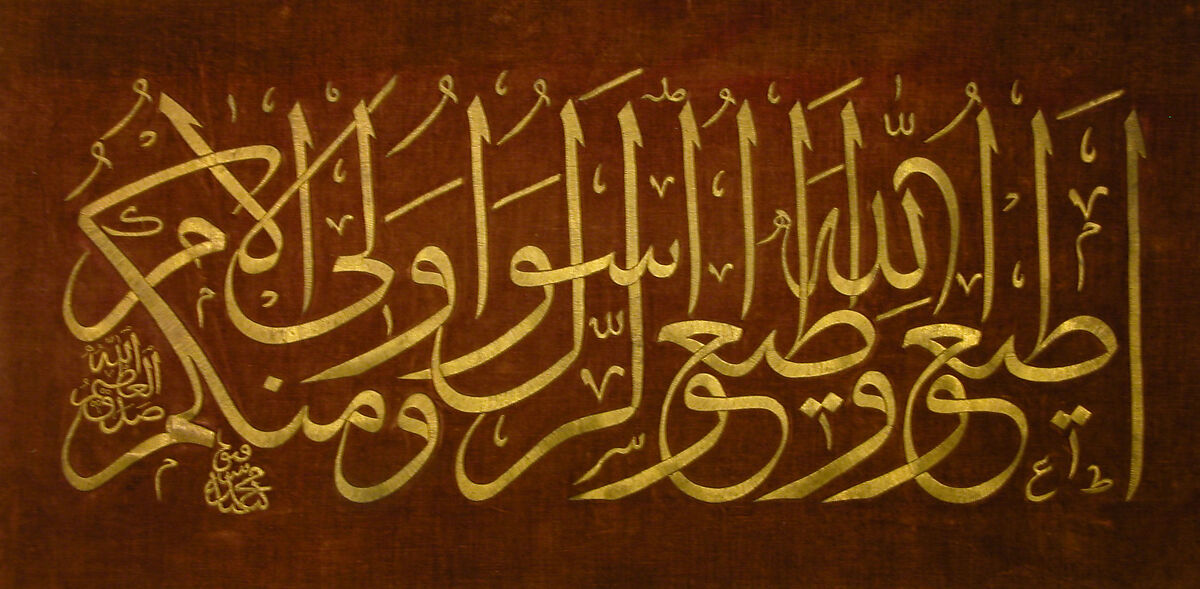 اطيعوا الله واطيعوا الرسول واولى الامر منكم
صدق الله العظيم